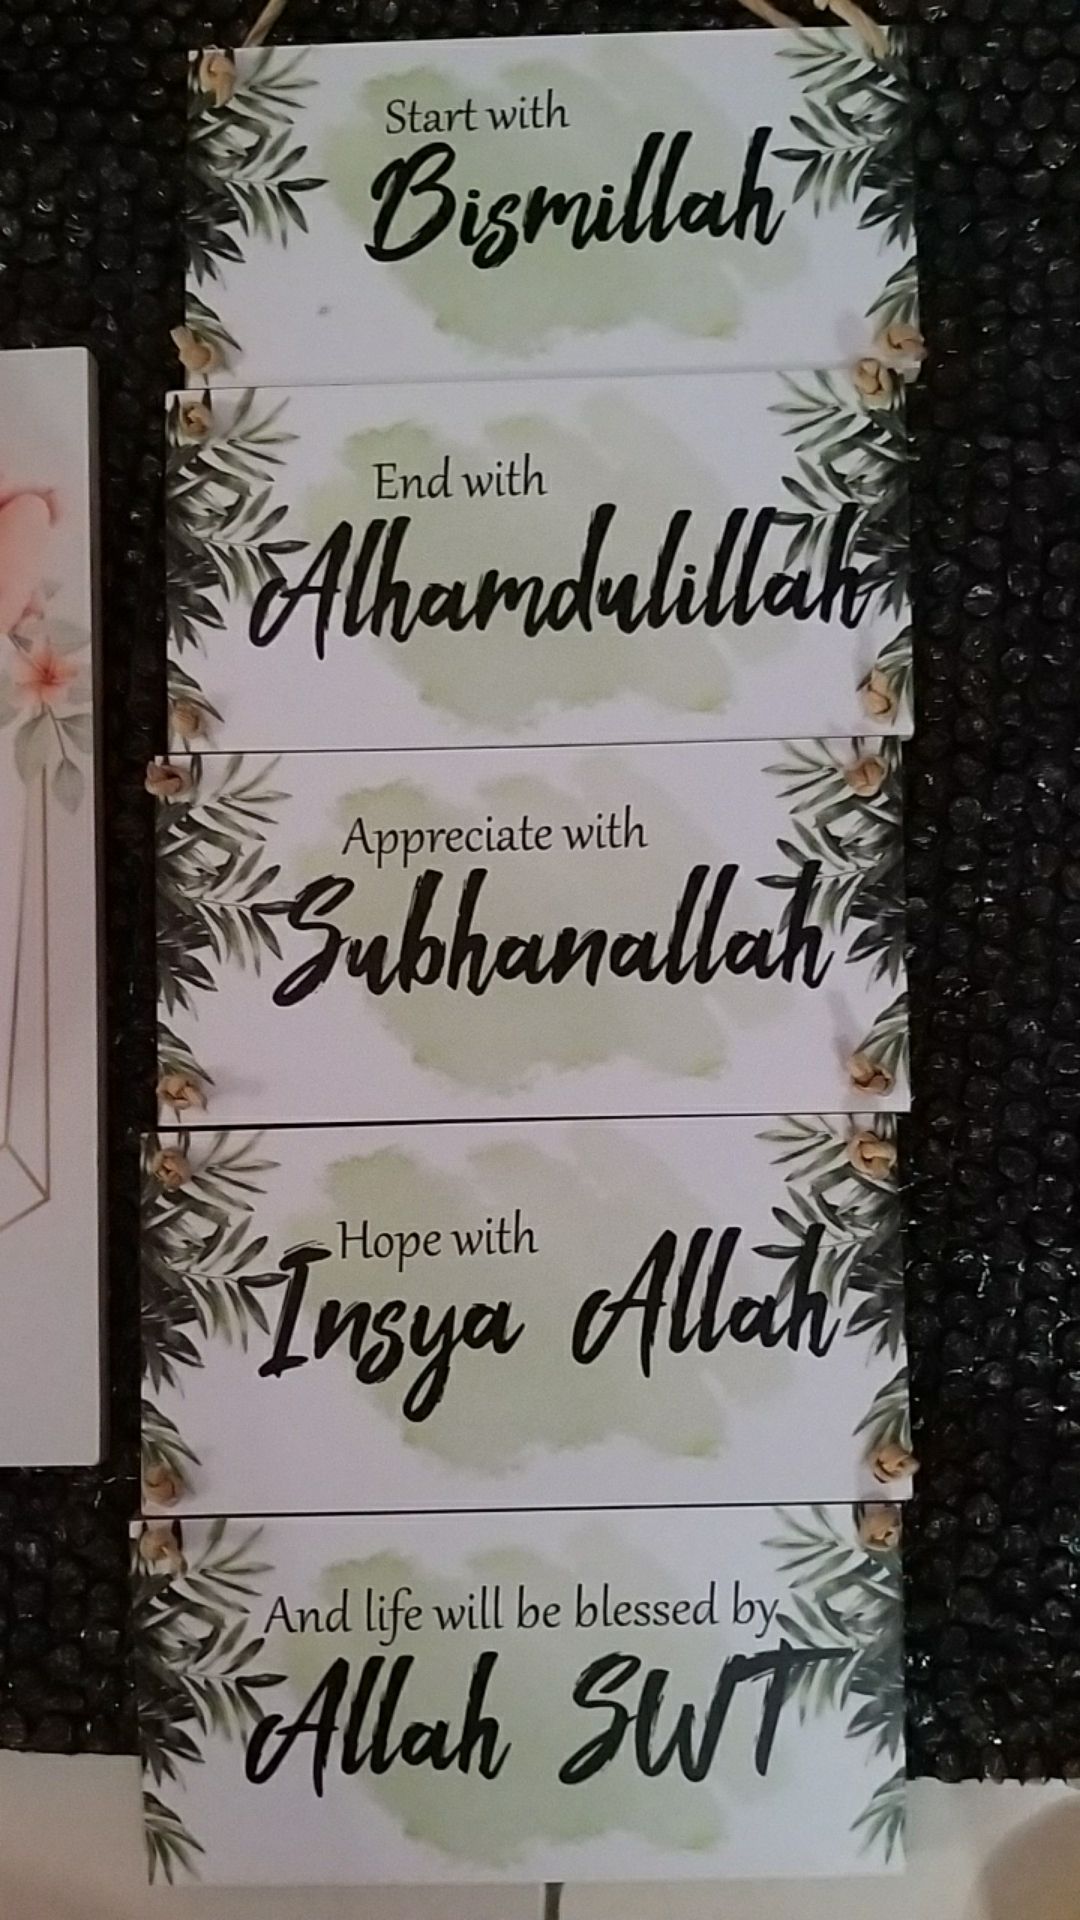 Start with
Bismillah
End with
Alhamdulillah
Appreciate with
Subhanallah
Hope with
Insya Allah
And life will be blessed by
Allah SWT